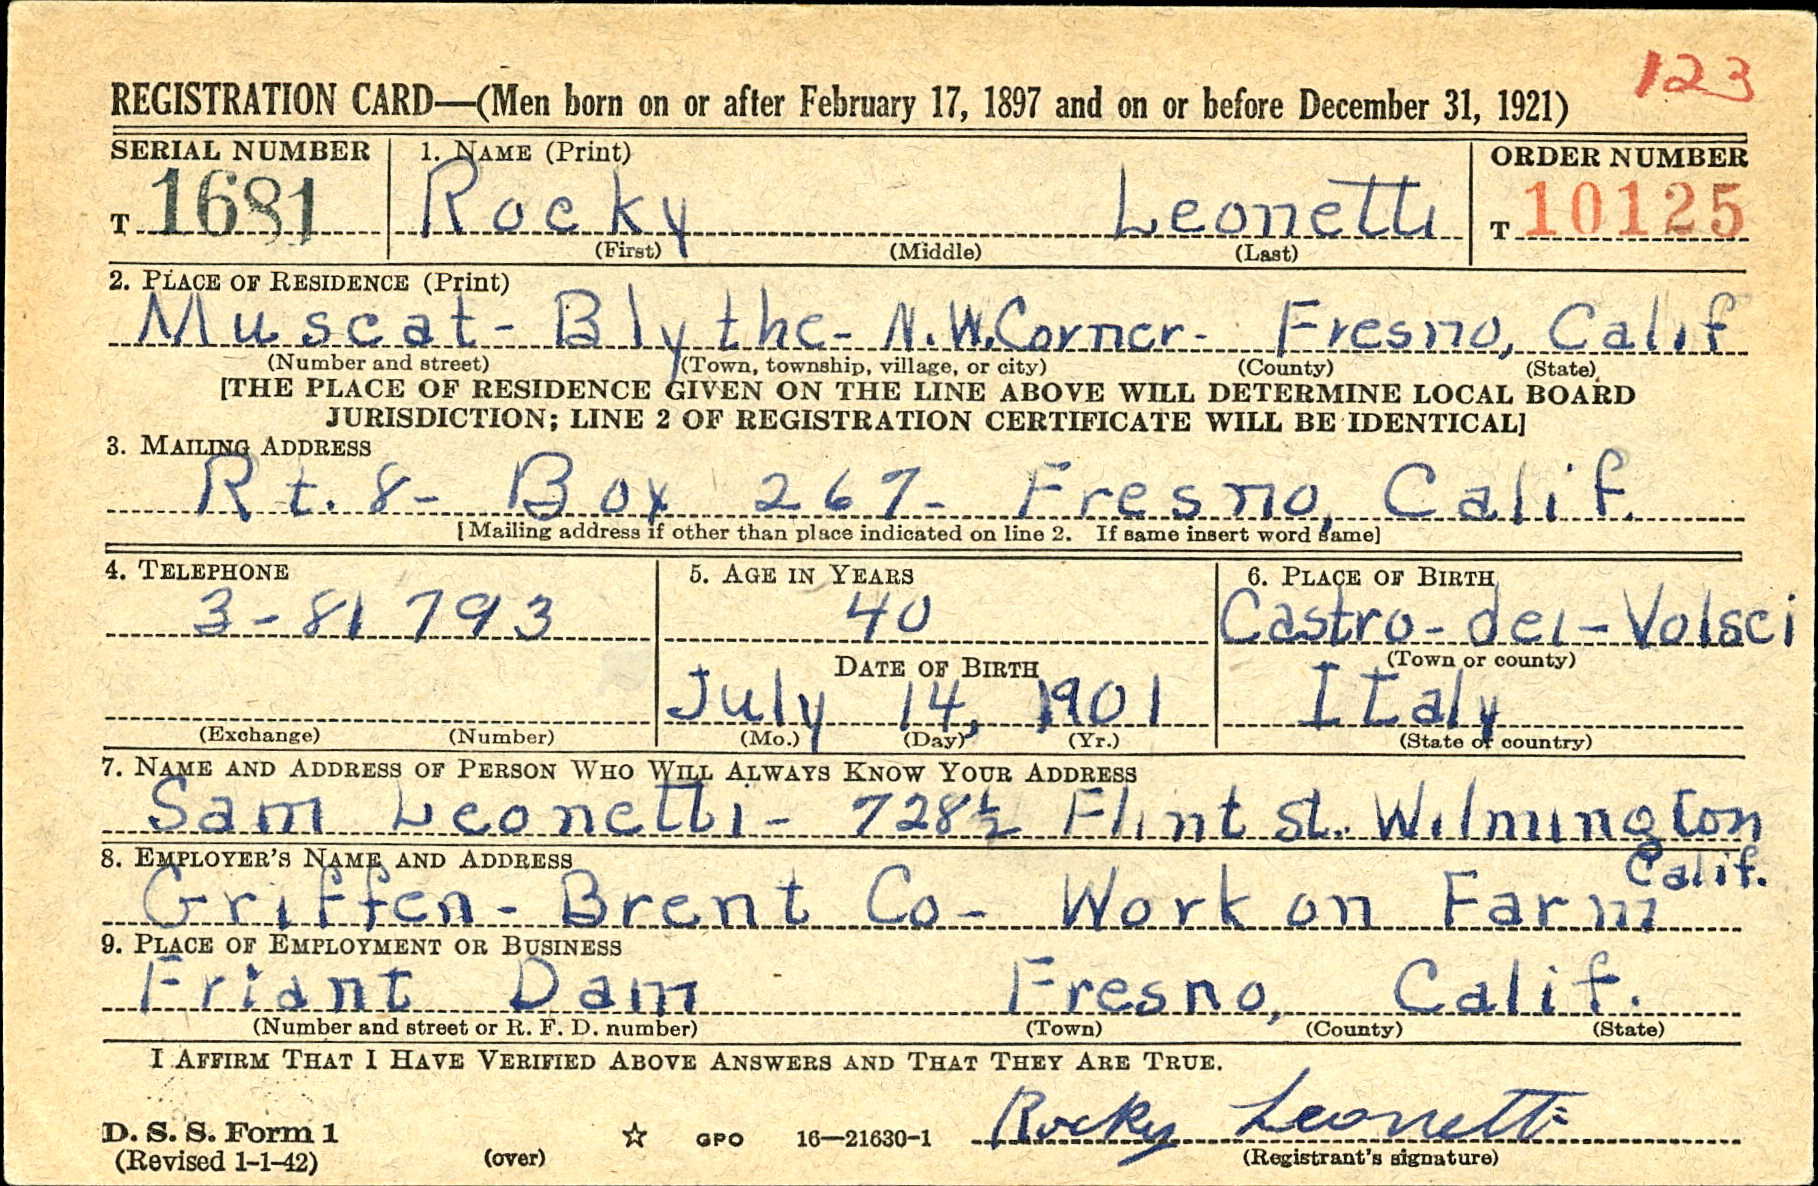 123
REGISTRATION CARD—(Men born on or after February 17, 1897 and on or before December 31, 1921)
SERIAL NUMBER 1. NAME (Print) ORDER NUMBER
T 1681 Rocky Leonetti T 10125
(First) (Middle) (Last)
2. PLACE OF RESIDENCE (Print)
Muscat - Blythe - N.W. Corner - Fresno, Calif
(Number and street) (Town, township, village, or city) (County) (State)
[THE PLACE OF RESIDENCE GIVEN ON THE LINE ABOVE WILL DETERMINE LOCAL BOARD
JURISDICTION; LINE 2 OF REGISTRATION CERTIFICATE WILL BE IDENTICAL]
3. MAILING ADDRESS
Rt. 8 - Box 267 - Fresno, Calif.
[Mailing address if other than place indicated on line 2. If same insert word same]
4. TELEPHONE 5. AGE IN YEARS 6. PLACE OF BIRTH
3-81793 40 Castro-del-Volsci
DATE OF BIRTH (Town or county)
July 14, 1901 Italy
(Exchange) (Number) (Mo.) (Day) (Yr.) (State or country)
7. NAME AND ADDRESS OF PERSON WHO WILL ALWAYS KNOW YOUR ADDRESS
Sam Leonetti - 728½ Flint St. Wilmington
Calif.
8. EMPLOYER'S NAME AND ADDRESS
Griffen - Brent Co - Work on Farm
9. PLACE OF EMPLOYMENT OR BUSINESS
Friant Dam Fresno, Calif.
(Number and street or R. F. D. number) (Town) (County) (State)
I AFFIRM THAT I HAVE VERIFIED ABOVE ANSWERS AND THAT THEY ARE TRUE.
D. S. S. Form 1 GPO 16—21630-1 Rocky Leonetti
(Revised 1-1-42) (over) (Registrant's signature)